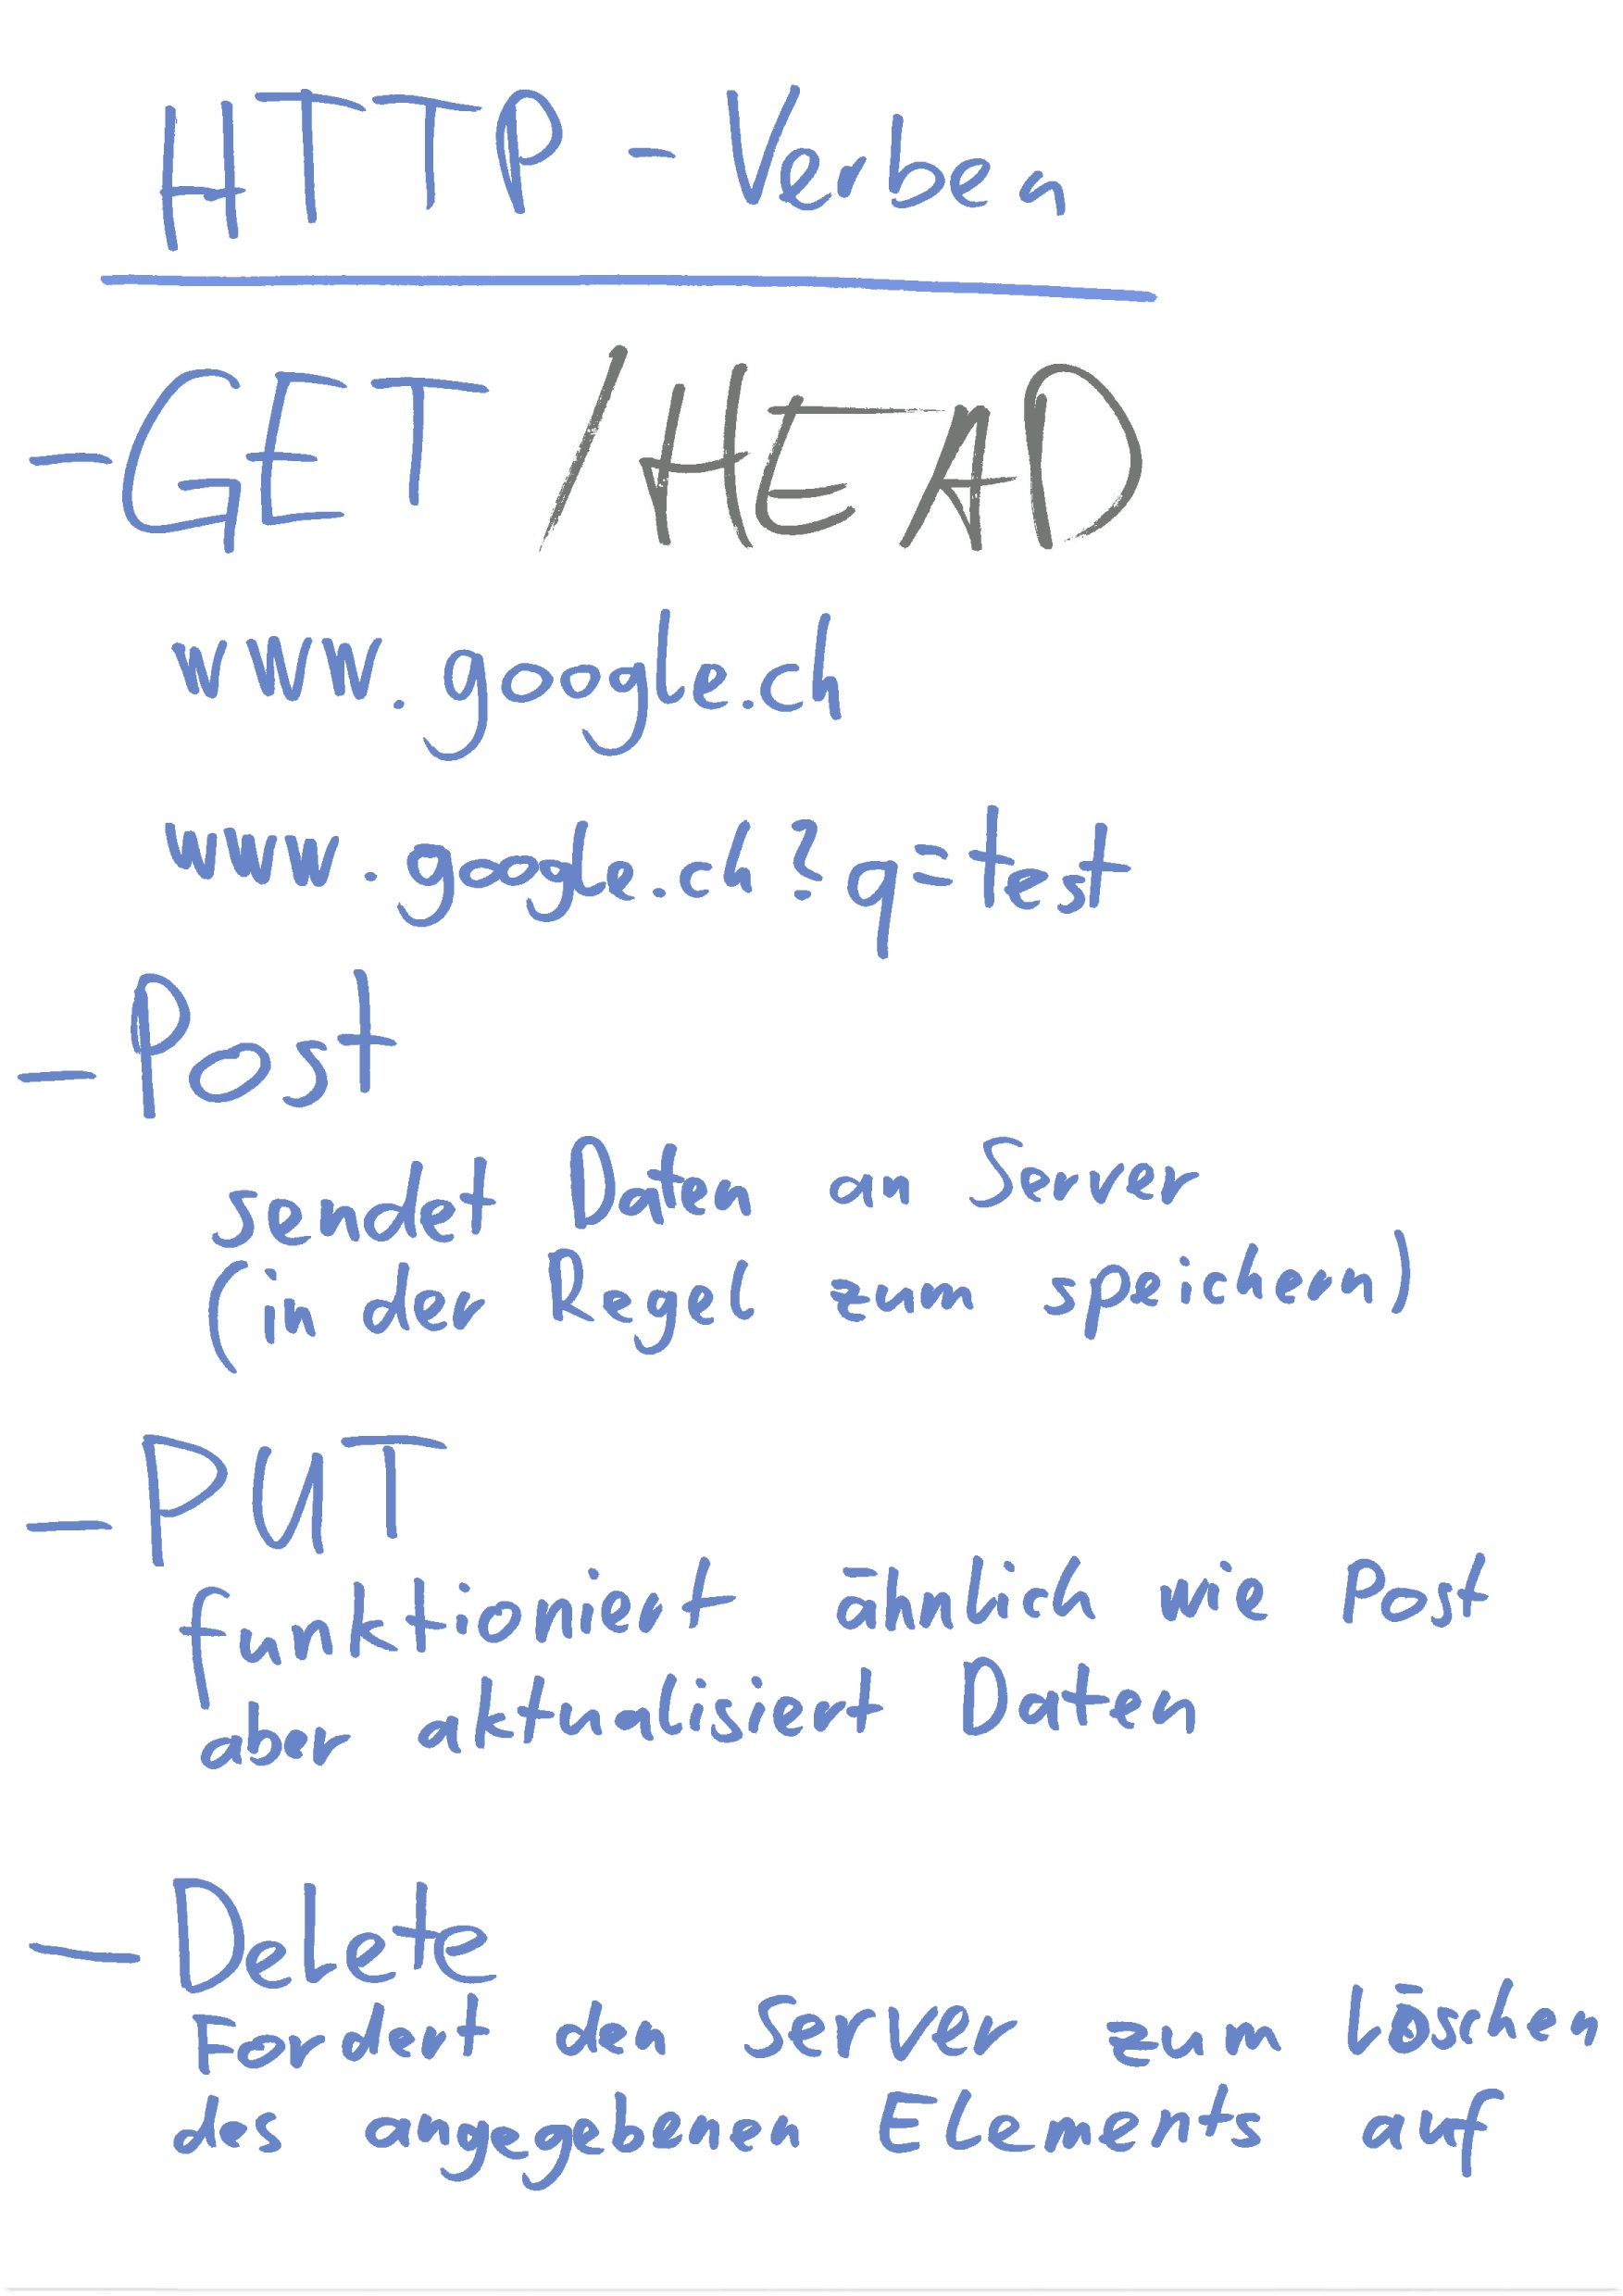 HTTP - Verben
- GET / HEAD
www.google.ch
www.google.ch?q=test
- Post
sendet Daten an Server
(in der Regel zum speichern)
- PUT
funktioniert ähnlich wie Post
aber aktualisiert Daten
- Delete
Fordert den Server zum Löschen
des angegebenen Elements auf